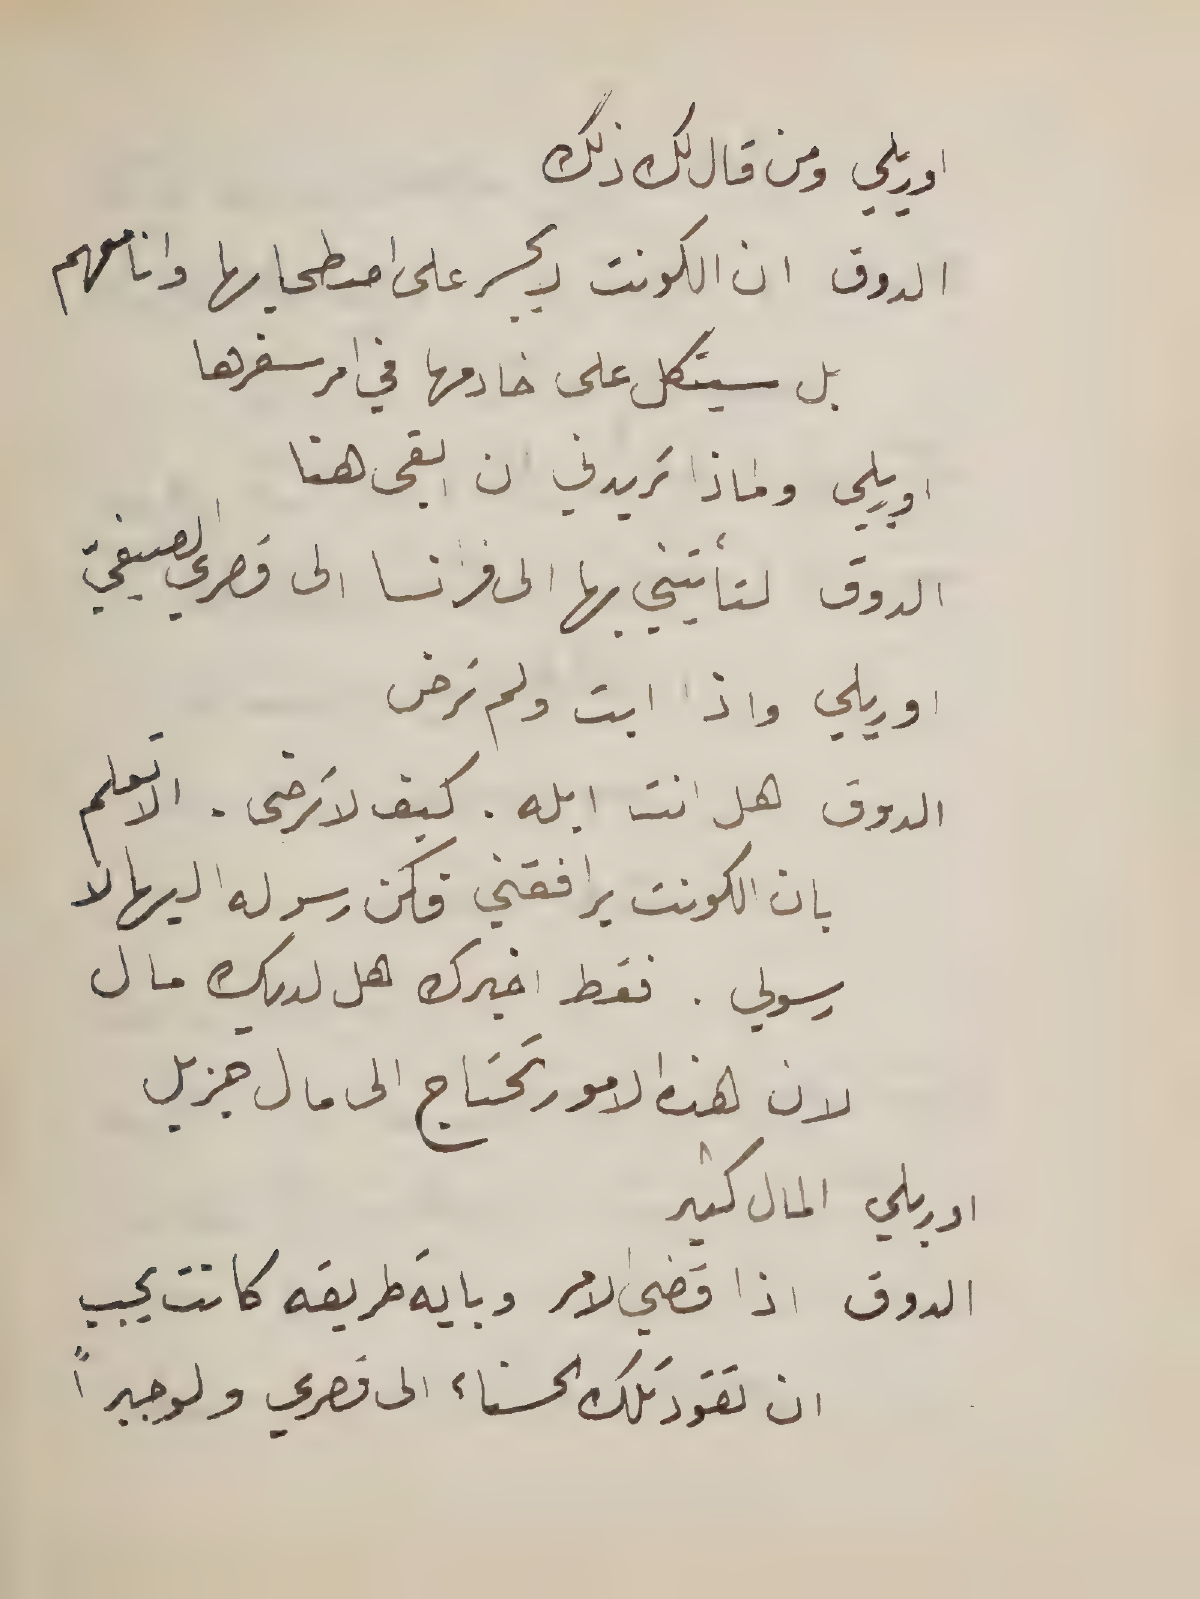 اوريلي ومن قال لك ذلك
الدوق ان الكونت لا يجسر على اصطحابها وانا معهم
بل سيتكل على خادمها في امر سفرها
اوريلي ولماذا تريدني ان ابقى هنا
الدوق لتأتيني بها الى فرنسا الى قصري الصيفيّ
اوريلي واذا ابت ولم ترض
الدوق هل انت ابله . كيف لا ترضى . الا تعلم
بان الكونت يرافقني فكن رسوله اليها لا
رسولي . فقط اخبرك هل لديك مال
لان هذه الامور تحتاج الى مال جزيل
اوريلي المال كثير
الدوق اذا قضي الامر وباية طريقه كانت يجب
ان تقود تلك الحسناء الى قصري ولو جبراً